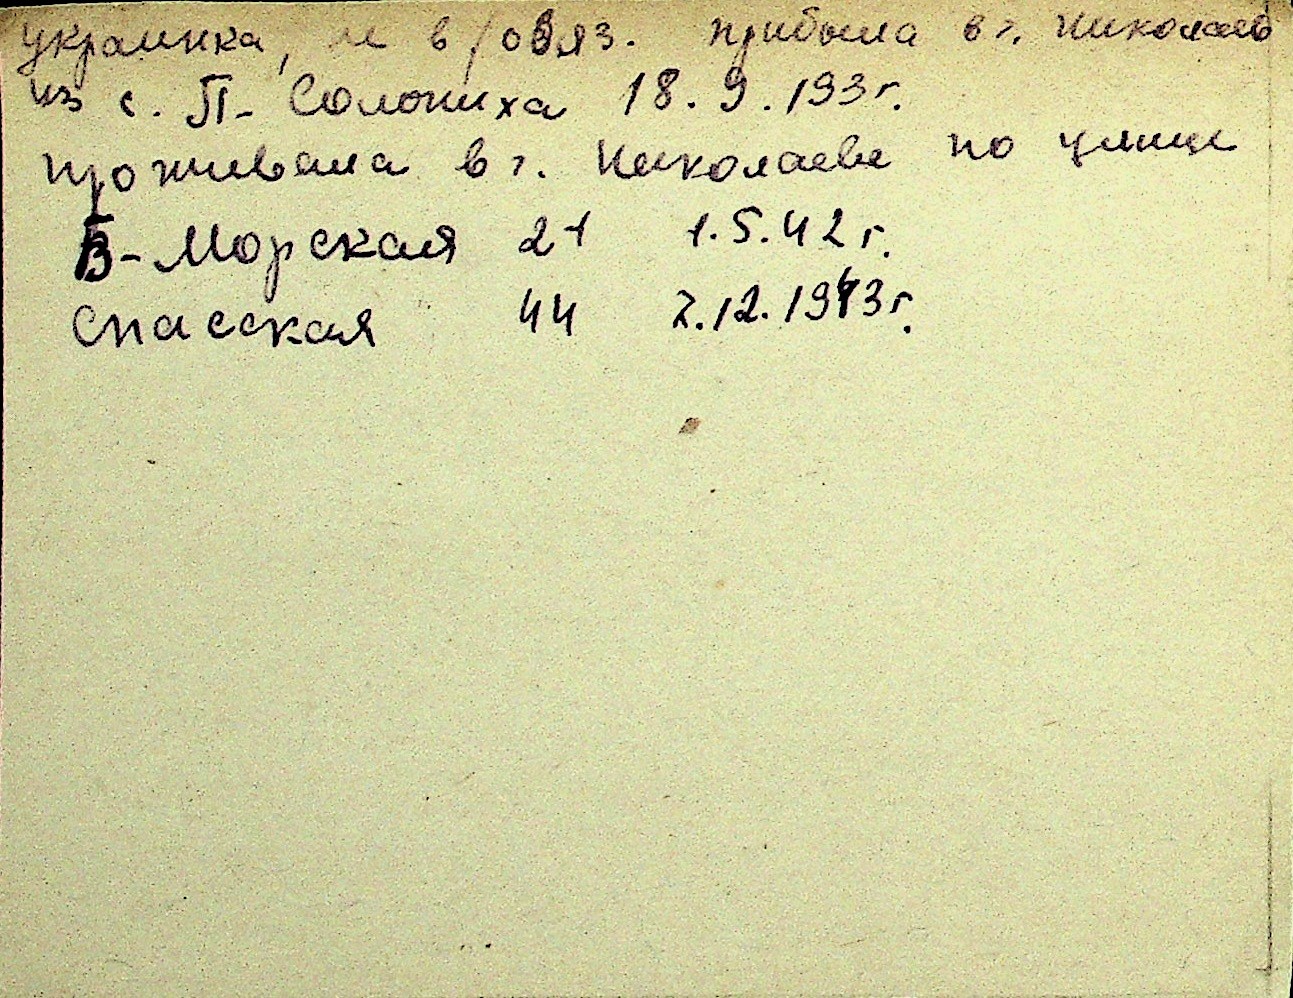 украинка, не в/обяз. прибыла в г. Николаев
из с. П-Солониха 18.9.193г.
проживала в г. Николаеве по улице
Б-Морская 21 1.5.42г.
Спасская 44 7.12.1943г.